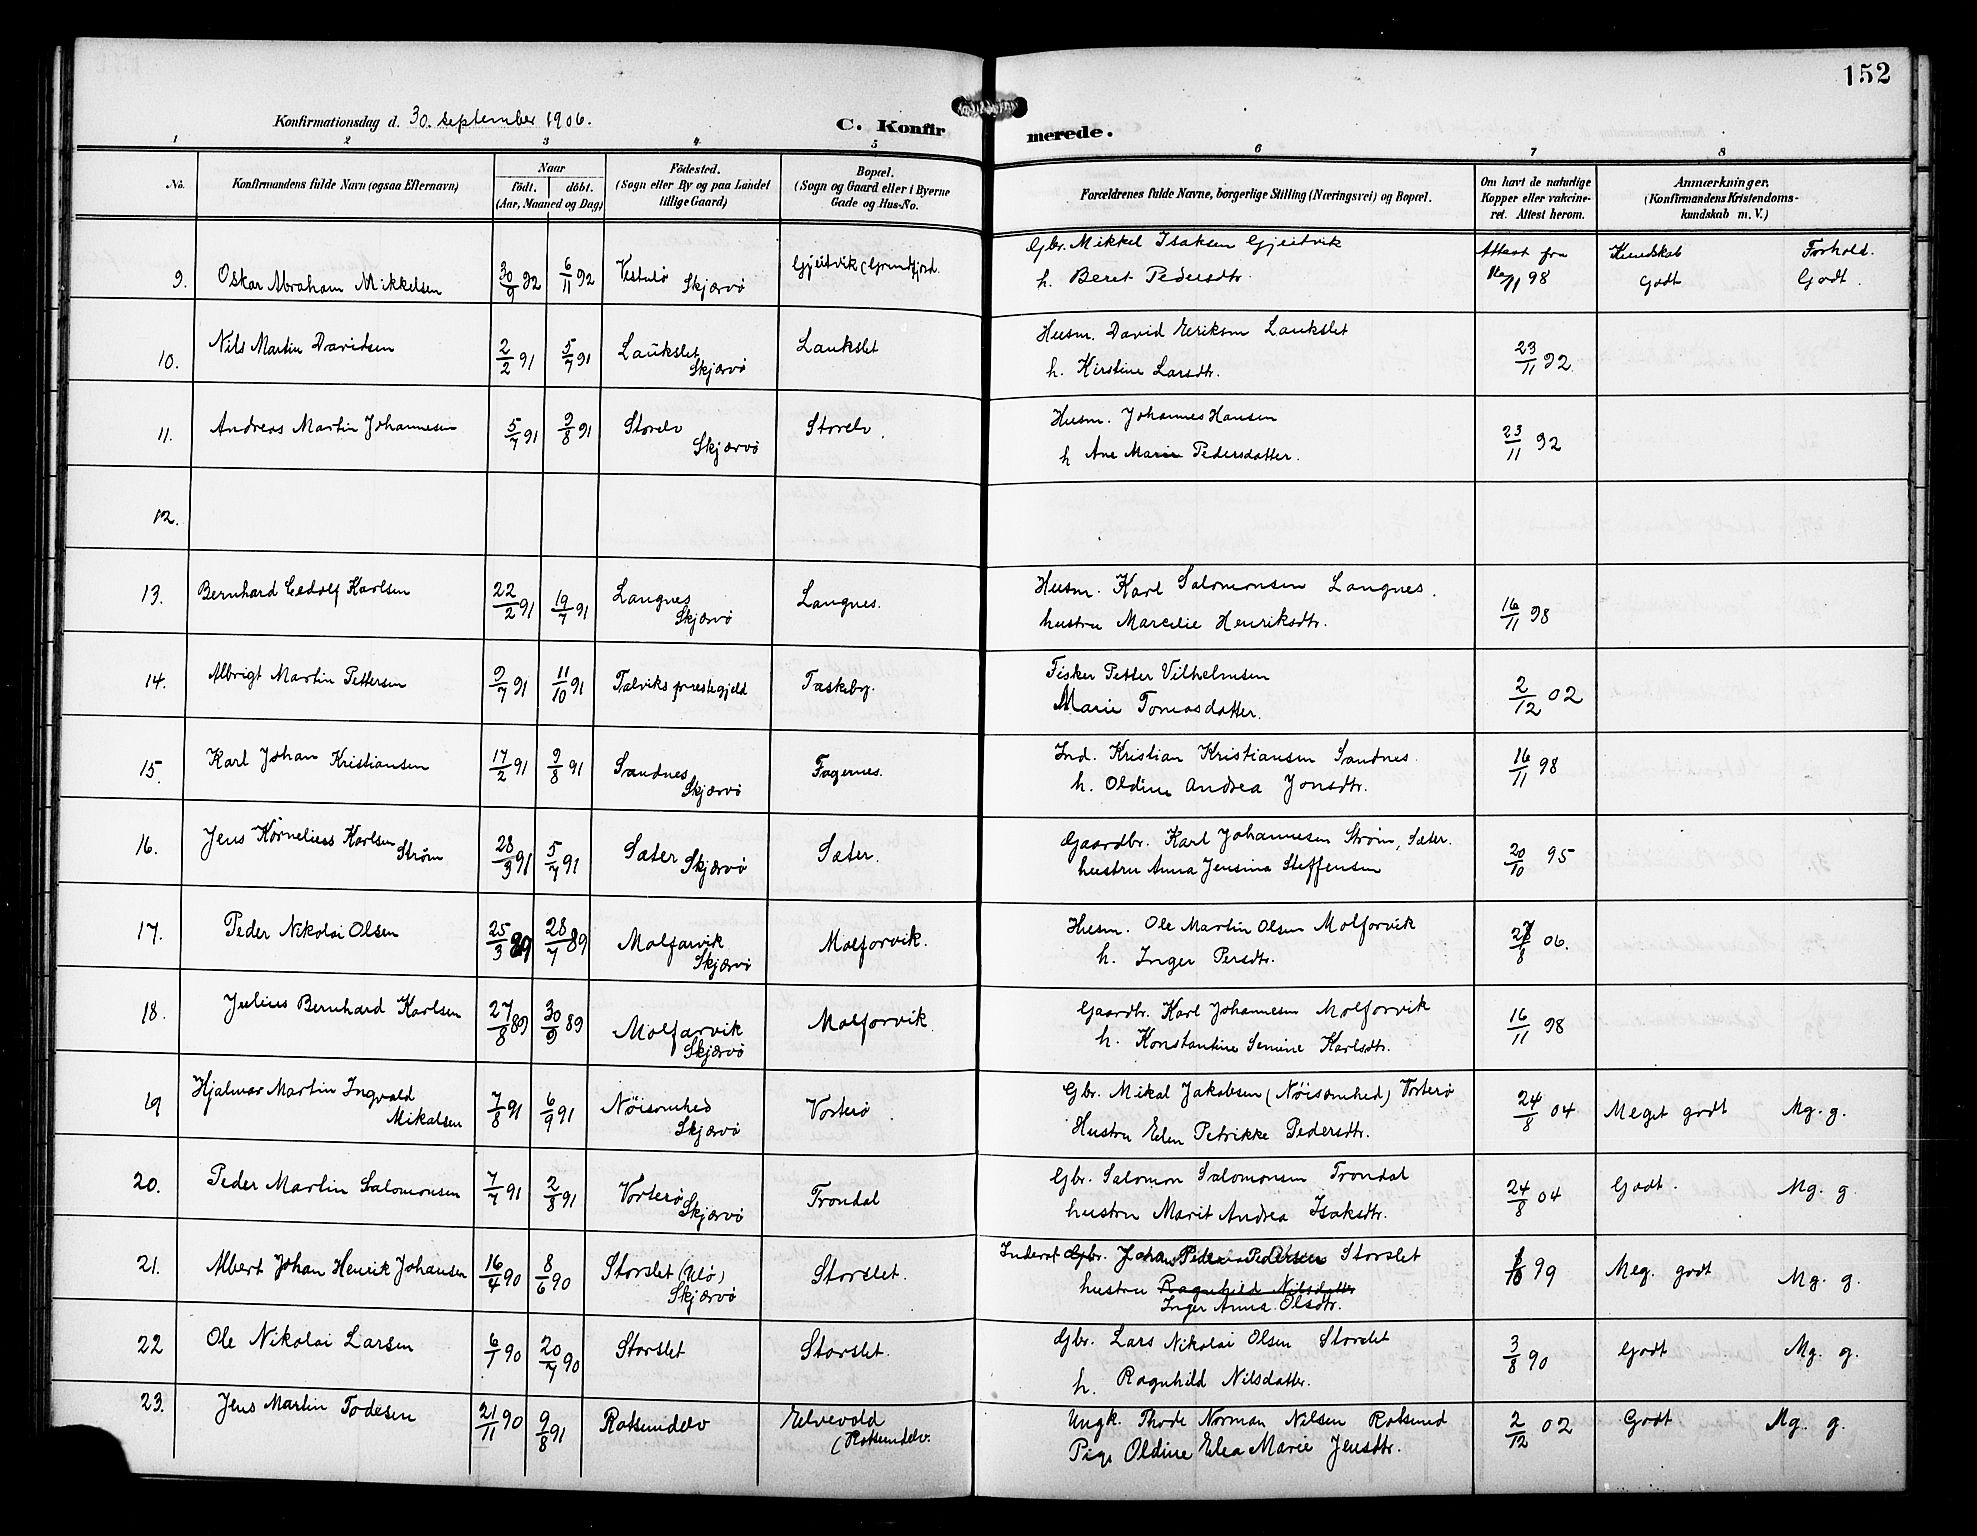 152
Konfirmationsdag d. 30. september 1906.
C. Konfirmerede.
1 2 3 4 5 6 7 8
No.
Konfirmandens fulde Navn (ogsaa Efternavn)
Naar
födt. döbt.
(Aar, Maaned og Dag)
Födested.
(Sogn eller By og paa Landet
tillige Gaard)
Bopæl.
(Sogn og Gaard eller i Byerne
Gade og Hus-No.
Forældrenes fulde Navne, borgerlige Stilling (Næringsvei) og Bopæl.
Om havt de naturlige
Kopper eller vakcine-
ret. Attest herom.
Anmærkninger.
(Konfirmandens Kristendoms-
kundskab m. V.)
9. Oskar Abraham Mikkelsen 30/9 92 6/11 92 Skjærvö Gjeitvik (Grundfjord.
Gbr. Mikkel Isaksen Gjeitvik
h. Beret Pedersdtr.
Attest fra 98
Kundskab Forhold.
Godt Godt.
10. Nils Martin Davidsen 2/2 91 5/7 91 Laukslet Skjærvö Laukslet
Husm. David Eriksen Laukslet
h. Kirstine Larsdtr.
23/11 92
11. Andreas Martin Johannesen 5/7 91 9/8 91 Storelv Skjærvö Storelv.
Husm. Johannes Hansen
h Ane Marie Pedersdatter.
23/11 92
12.
13. Bernhard Edolf Karlsen 22/2 91 19/7 91 Langnes Skjærvö Langnes.
Husm. Karl Salomonsen Langnes.
hustru Marcelie Henriksdtr.
16/11 98
14. Albrigt Martin Pettersen 9/7 91 11/10 91 Talviks præstegjeld Taskeby.
Fisker Petter Vilhelmsen
Marie Tomasdatter.
2/12 02
15. Karl Johan Kristiansen 17/2 91 9/8 91 Sandnes Skjærvö Fagernes.
Ind. Kristian Kristiansen Sandnes.
h. Oldine Andrea Jonsdtr.
16/11 98
16. Jens Kornelius Karlsen Ström 28/3 91 5/7 91 Sæter Skjærvö Sæter.
Gaardbr. Karl Johannesen Ström, Sæter.
hustru Anna Jensina Steffensen
20/10 95
17. Peder Nikolai Olsen 25/3 89 28/7 89 Molfarvik Skjærvö Molforvik.
Husm. Ole Martin Olsen Molforvik
h. Inger Persdtr.
06.
18. Julius Bernhard Karlsen 27/8 89 30/9 89 Molfarvik Skjærvö Molforvik.
Gaardbr. Karl Johannesen Molforvik
h. Konstantine Semine Karlsdtr.
16/11 98
19 Hjalmar Martin Ingvald Mikalsen 7/8 91 6/9 91 Nöisomhed Skjærvö Vorterö.
Gbr. Mikal Jakobsen (Nöisomhed) Vorterö
Hustru Elen Petrikke Pedersdtr.
24/8 04 Meget godt Mg. g.
20. Peder Martin Salomonsen 7/7 91 2/8 91 Vorterö Skjærvö Trondal
Gbr. Salomon Salomonsen Trondal
hustru Marit Andrea Isaksdtr.
24/8 04 Godt. Mg. g.
21. Albert Johan Henrik Johansen 16/4 90 8/6 90 Storslet (Ulö) Skjærvö Storslet.
Inderst Gbr. Johan Peder Pedersen Storslet
hustru Ragnhild Nilsdatter
Inger Anna Olsdtr.
99 Meg. godt Mg. g.
22 Ole Nikolai Larsen 6/1 90 20/7 90 Storslet Storslet.
Gbr. Lars Nikolai Olsen Storslet
h. Ragnhild Nilsdatter.
3/8 90 Godt Mg. g.
23. Jens Martin Todesen 21/11 90 9/8 91 Rotsundelv Elvevold (Rotsundelv.
Ungk. Thode Norman Nilsen Rotsund
Pige Oldine Elea Marie Jensdtr.
2/12 02 Godt Mg. g.